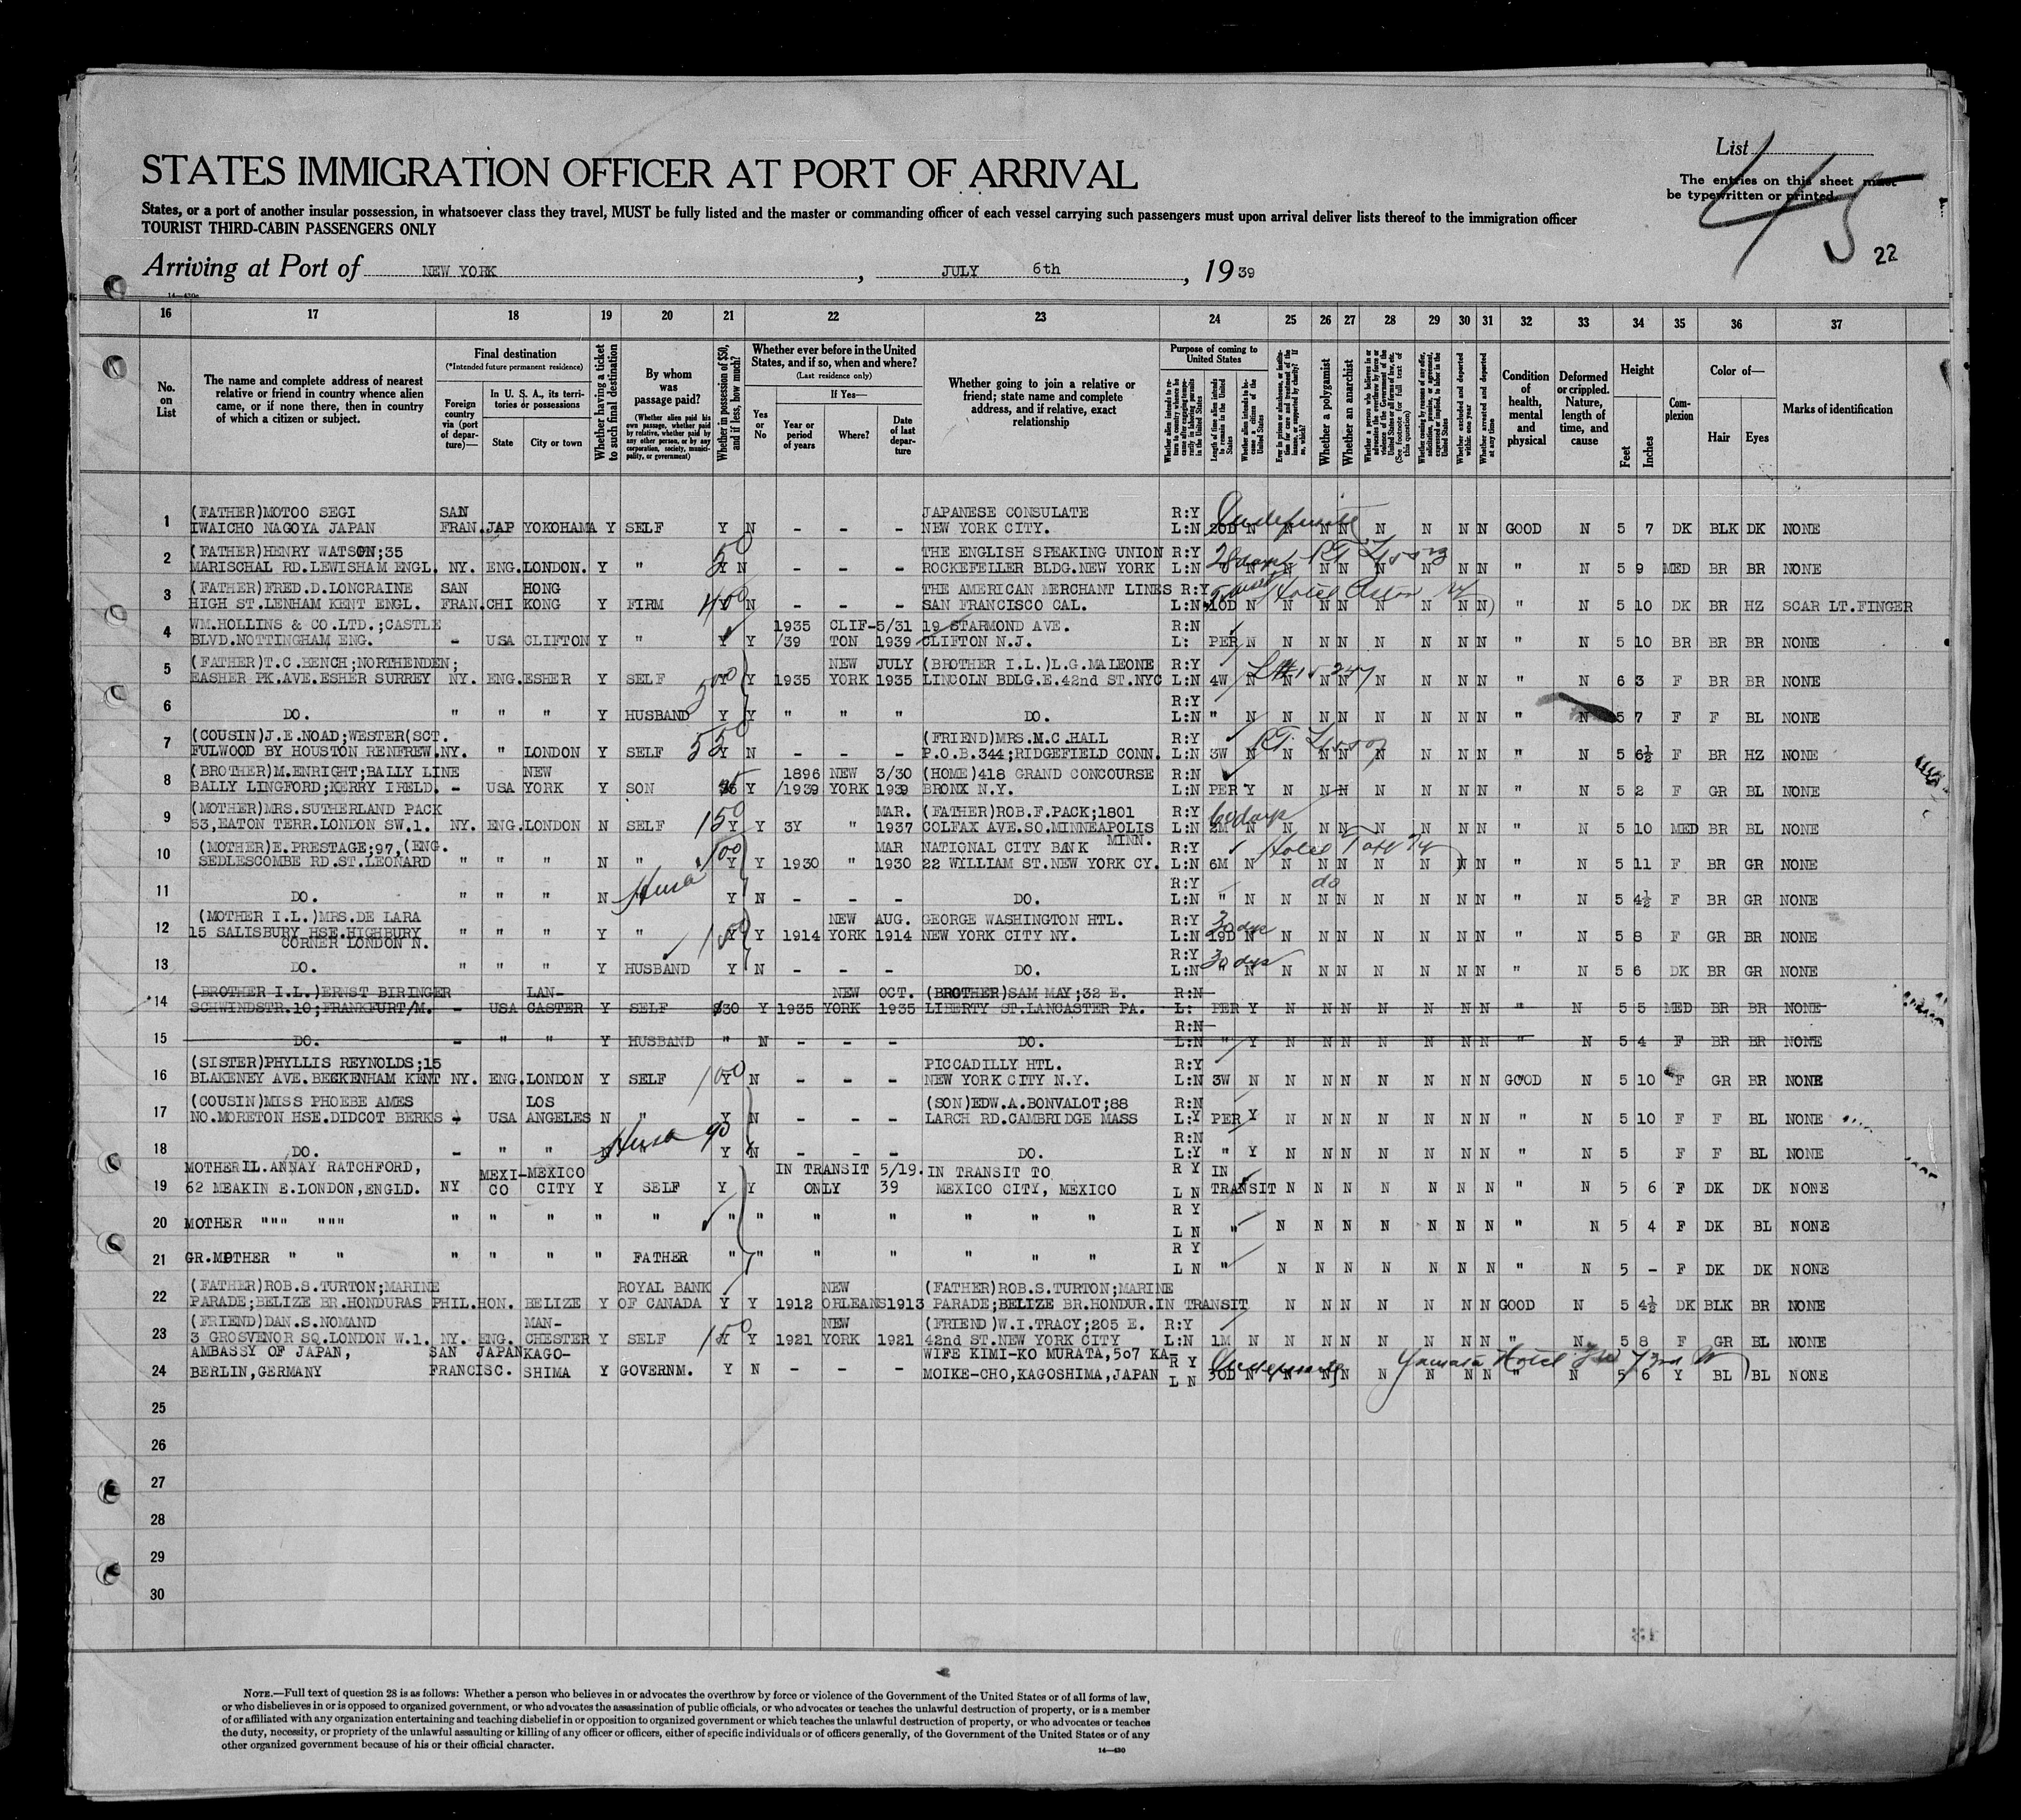 List
STATES IMMIGRATION OFFICER AT PORT OF ARRIVAL
The entries on this sheet must
be typewritten or printed.
45
22
States, or a port of another insular possession, in whatsoever class they travel, MUST be fully listed and the master or commanding officer of each vessel carrying such passengers must upon arrival deliver lists thereof to the immigration officer
TOURIST THIRD-CABIN PASSENGERS ONLY
Arriving at Port of NEW YORK, JULY 6th, 1939
16 17 18 19 20 21 22 23 24 25 26 27 28 29 30 31 32 33 34 35 36 37
No. on List
The name and complete address of nearest relative or friend in country whence alien came, or if none there, then in country of which a citizen or subject.
Final destination
(*Intended future permanent residence)
Foreign country via (port of departure)—
In U. S. A., its territories or possessions
State
City or town
Whether having a ticket to such final destination
By whom was passage paid?
(Whether alien paid his own passage, whether paid by relative, whether paid by any other person, or by any corporation, society, municipality, or government)
Whether in possession of $50, and if less, how much?
Whether ever before in the United States, and if so, when and where?
(Last residence only)
Yes or No
If Yes—
Year or period of years
Where?
Date of last departure
Whether going to join a relative or friend; state name and complete address, and if relative, exact relationship
Purpose of coming to United States
Length of time alien intends to remain in the United States
Whether alien intends to become a citizen of the United States
Whether a polygamist
Whether an anarchist
Whether excluded and deported within one year
Whether arrested and deported at any time
Condition of health, mental and physical
Deformed or crippled. Nature, length of time, and cause
Height
Feet
Inches
Complexion
Color of—
Hair
Eyes
Marks of identification
(FATHER)MOTOO SEGI SAN JAPANESE CONSULATE R:Y
1 IWAICHO NAGOYA JAPAN FRAN. JAP YOKOHAMA Y SELF Y N - - - NEW YORK CITY. L:N 20D N N N N N N N N GOOD N 5 7 DK BLK DK NONE
(FATHER)HENRY WATSON;35 50 THE ENGLISH SPEAKING UNION R:Y
2 MARISCHAL RD.LEWISHAM ENGL. NY. ENG. LONDON. Y " Y N - - - ROCKEFELLER BLDG.NEW YORK L:N N N N N N N N N " N 5 9 MED BR BR NONE
(FATHER)FRED.D.LONCRAINE SAN HONG THE AMERICAN MERCHANT LINES R:Y Hotel Astor
3 HIGH ST.LENHAM KENT ENGL. FRAN. CHI KONG Y FIRM N - - - SAN FRANCISCO CAL. L:N 10D N N N N N N N N " N 5 10 DK BR HZ SCAR LT.FINGER
WM.HOLLINS & CO.LTD.;CASTLE 1935 CLIF- 5/31 19 STARMOND AVE. R:N
4 BLVD.NOTTINGHAM ENG. - USA CLIFTON Y " Y Y /39 TON 1939 CLIFTON N.J. L: PER N N N N N N N N " N 5 10 BR BR BR NONE
(FATHER)T.C.BENCH;NORTHENDEN; NEW JULY (BROTHER I.L.)L.G.MALEONE R:Y
5 EASHER PK.AVE.ESHER SURREY NY. ENG. ESHER Y SELF 500 Y Y 1935 YORK 1935 LINCOLN BDLG.E.42nd ST.NYC L:N 4W N N N N N N N N " N 6 3 F BR BR NONE
R:Y
6 DO. " " " Y HUSBAND Y Y " " " DO. L:N " N N N N N N N N " N 5 7 F F BL NONE
(COUSIN)J.E.NOAD;WESTER(SCT. (FRIEND)MRS.M.C.HALL R:Y
7 FULWOOD BY HOUSTON RENFREW. NY. " LONDON Y SELF 550 Y N - - - P.O.B.344;RIDGEFIELD CONN. L:N 3W N N N N N N N N " N 5 6½ F BR HZ NONE
(BROTHER)M.ENRIGHT;BALLY LINE NEW 1896 NEW 3/30 (HOME)418 GRAND CONCOURSE R:N
8 BALLY LINGFORD;KERRY IRELD. - USA YORK Y SON Y /1939 YORK 1939 BRONX N.Y. L:N PER Y N N N N N N N " N 5 2 F GR BL NONE
(MOTHER)MRS.SUTHERLAND PACK MAR. (FATHER)ROB.F.PACK;1801 R:Y 60 days
9 53,EATON TERR.LONDON SW.1. NY. ENG. LONDON N SELF 150 Y Y 3Y " 1937 COLFAX AVE.SO.MINNEAPOLIS MINN. L:N 2M N N N N N N N N " N 5 10 MED BR BL NONE
(MOTHER)E.PRESTAGE;97,(ENG. 100 MAR NATIONAL CITY BANK R:Y Hotel Taft
10 SEDLESCOMBE RD.ST.LEONARD " " " N " Y Y 1930 " 1930 22 WILLIAM ST.NEW YORK CY. L:N 6M N N N N N N N N " N 5 11 F BR GR NONE
R:Y do
11 DO. " " " N Y N - - - DO. L:N " N N N N N N N N " N 5 4½ F BR GR NONE
(MOTHER I.L.)MRS.DE LARA NEW AUG. GEORGE WASHINGTON HTL. R:Y 30 dys
12 15 SALISBURY HSE.HIGHBURY CORNER LONDON N. " " " Y " Y Y 1914 YORK 1914 NEW YORK CITY NY. L:N 19D N N N N N N N N " N 5 8 F GR BR NONE
R:Y 30 dys
13 DO. " " " Y HUSBAND Y N - - - DO. L:N " N N N N N N N N " N 5 6 DK BR GR NONE
(BROTHER I.L.)ERNST BIRINGER LAN- NEW OCT. (BROTHER)SAM MAY;32 E. R:N
14 SCHWINDSTR.10;FRANKFURT/M. - USA CASTER Y SELF $30 Y 1935 YORK 1935 LIBERTY ST.LANCASTER PA. L: PER Y N N N N N N N " N 5 5 MED BR BR NONE
R:N
15 DO. - " " Y HUSBAND " N - - - DO. L:N " Y N N N N N N N " N 5 4 F BR BR NONE
(SISTER)PHYLLIS REYNOLDS;15 PICCADILLY HTL. R:Y
16 BLAKENEY AVE.BECKENHAM KENT NY. ENG. LONDON Y SELF 100 Y N - - - NEW YORK CITY N.Y. L:N 3W N N N N N N N N GOOD N 5 10 F GR BR NONE
(COUSIN)MISS PHOEBE AMES LOS (SON)EDW.A.BONVALOT;88 R:N
17 NO.MORETON HSE.DIDCOT BERKS - USA ANGELES N " Y N - - - LARCH RD.CAMBRIDGE MASS L:Y PER Y N N N N N N N " N 5 10 F F BL NONE
R:N
18 DO. - " " N 90 Y N - - - DO. L:Y " Y N N N N N N N " N 5 F F BL NONE
MOTHER IL.ANNAY RATCHFORD, MEXI- MEXICO IN TRANSIT 5/19. IN TRANSIT TO R Y IN
19 62 MEAKIN E.LONDON,ENGLD. NY CO CITY Y SELF Y Y ONLY 39 MEXICO CITY, MEXICO L N TRANSIT N N N N N N N " N 5 6 F DK DK NONE
R Y
20 MOTHER """ """ " " " " " " " " " " " " " L N " N N N N N N N " N 5 4 F DK BL NONE
R Y
21 GR.MOTHER " " " " " " FATHER " " " " " " " L N " N N N N N N N " N 5 - F DK DK NONE
(FATHER)ROB.S.TURTON;MARINE ROYAL BANK NEW (FATHER)ROB.S.TURTON;MARINE
22 PARADE;BELIZE BR.HONDURAS PHIL. HON. BELIZE Y OF CANADA Y Y 1912 ORLEANS 1913 PARADE;BELIZE BR.HONDUR. IN TRANSIT N N N N N N N GOOD N 5 4½ DK BLK BR NONE
(FRIEND)DAN.S.NOMAND MAN- NEW (FRIEND)W.I.TRACY;205 E. R:Y
23 3 GROSVENOR SQ.LONDON W.1. NY. ENG. CHESTER Y SELF 150 Y 1921 YORK 1921 42nd ST.NEW YORK CITY L:N 1M N N N N N N N N " N 5 8 F GR BL NONE
AMBASSY OF JAPAN, SAN JAPAN KAGO- WIFE KIMI-KO MURATA,507 KA- R Y
24 BERLIN,GERMANY FRANCISC. SHIMA Y GOVERNM. Y N - - - MOIKE-CHO,KAGOSHIMA,JAPAN L N 30D N N N N N N N " N 5 6 Y BL BL NONE
25
26
27
28
29
30
NOTE.—Full text of question 28 is as follows: Whether a person who believes in or advocates the overthrow by force or violence of the Government of the United States or of all forms of law,
or who disbelieves in or is opposed to organized government, or who advocates the assassination of public officials, or who advocates or teaches the unlawful destruction of property, or is a member
of or affiliated with any organization entertaining and teaching disbelief in or opposition to organized government or which teaches the unlawful destruction of property, or who advocates or teaches
the duty, necessity, or propriety of the unlawful assaulting or killing of any officer or officers, either of specific individuals or of officers generally, of the Government of the United States or of any
other organized government because of his or their official character.
14—430